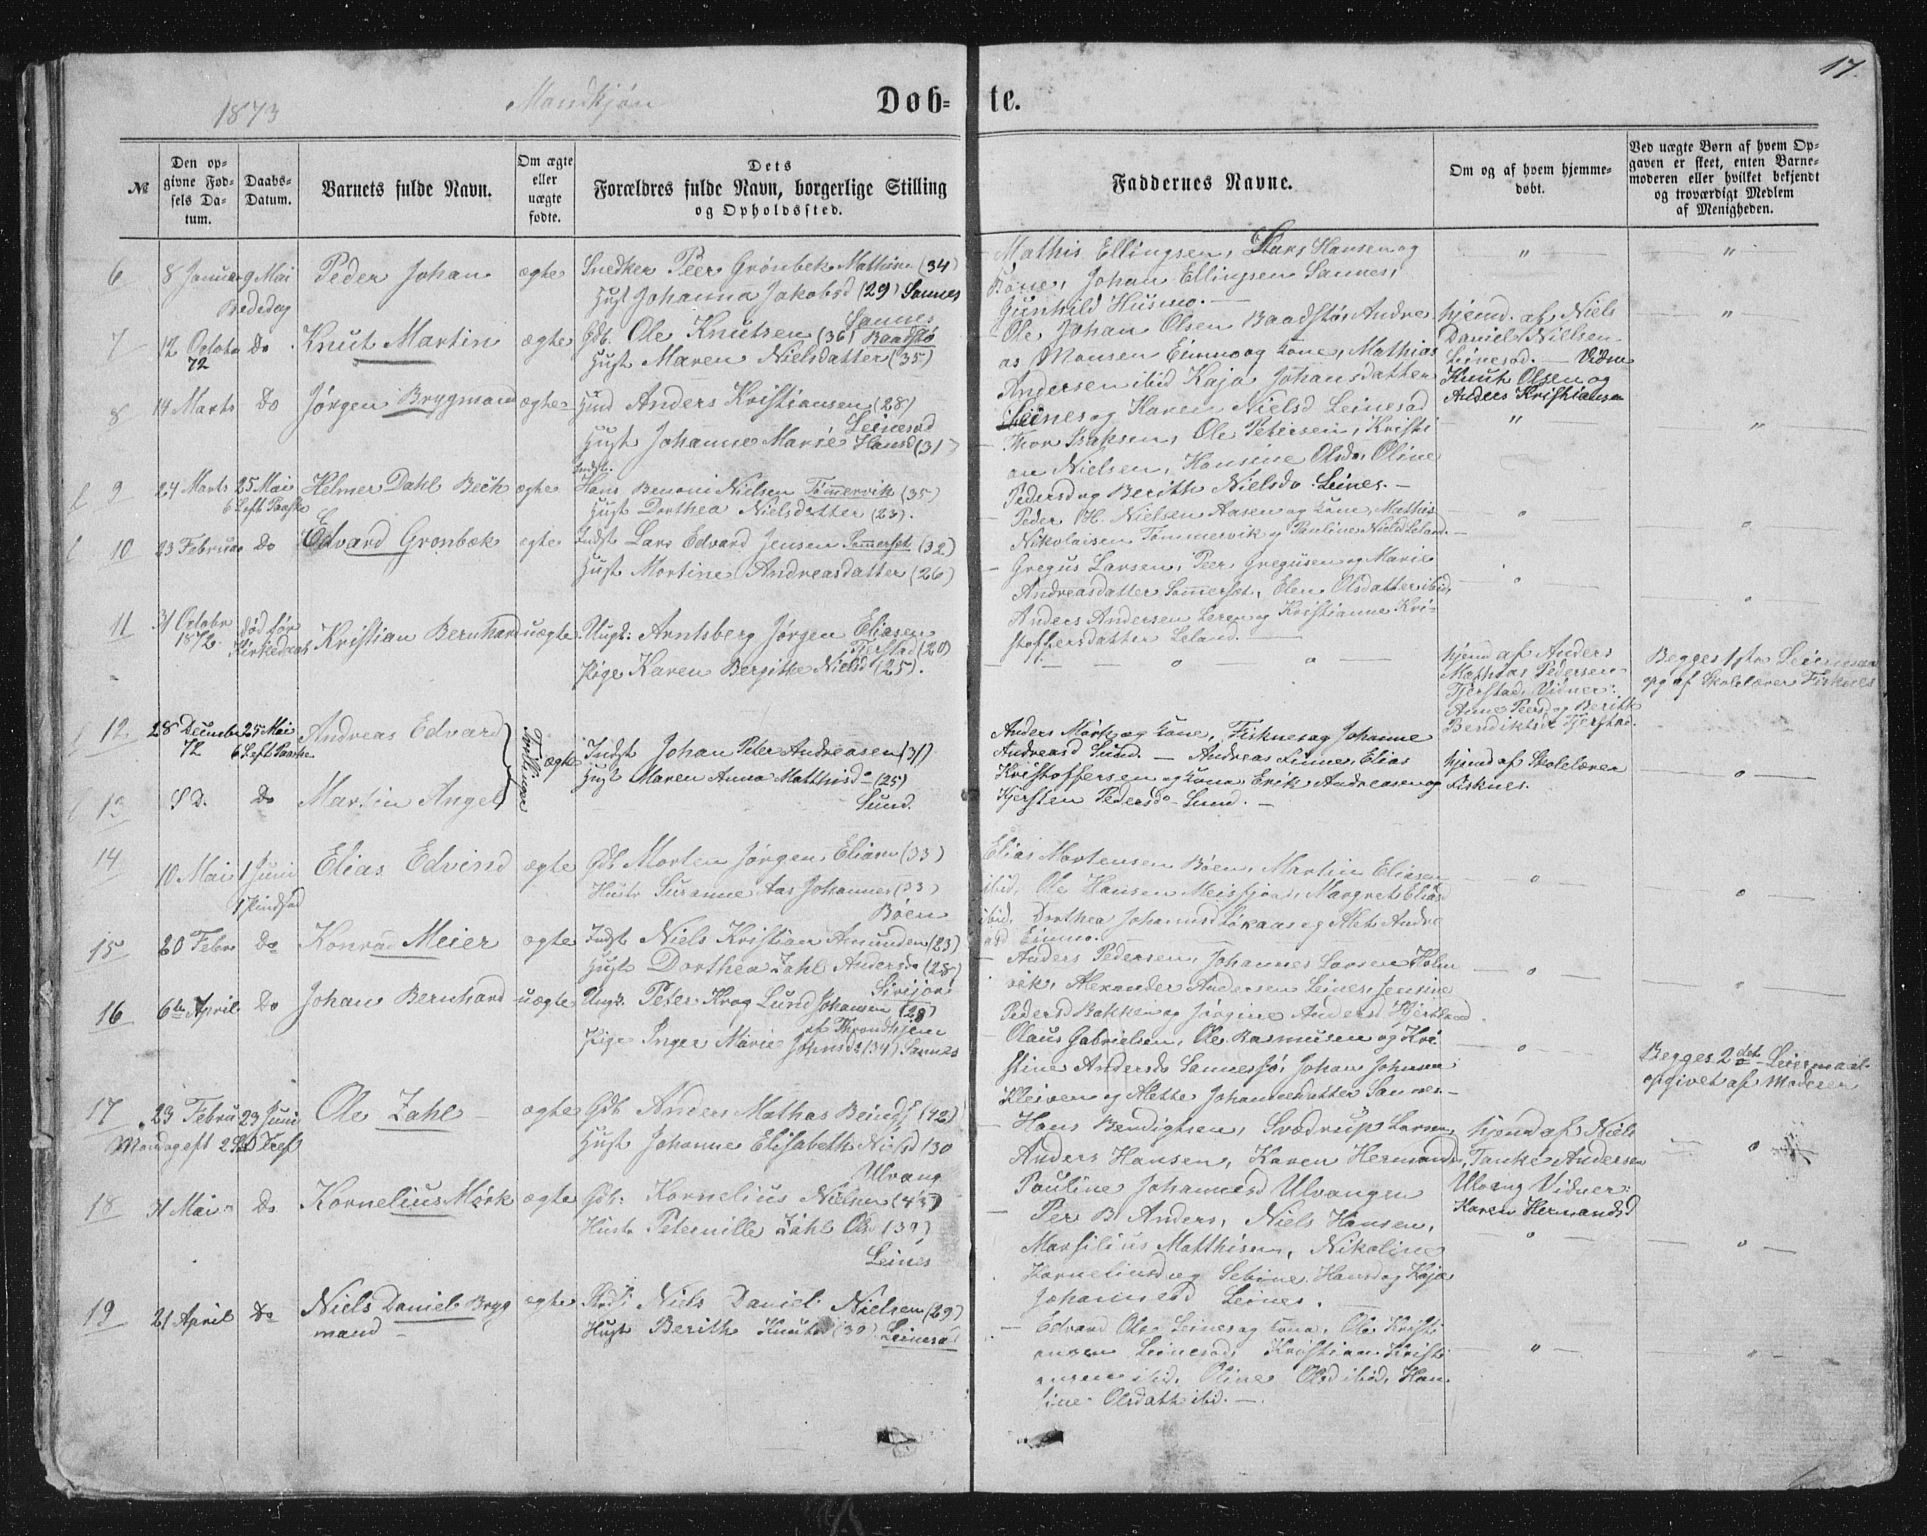 17.
1873
Mandkjøn
Døb-
te.
№
Den op-
givne Fød-
sels Da-
tum.
Daabs-
Datum.
Barnets fulde Navn.
Om ægte
eller
uægte
fødte.
Dets
Forældres fulde Navn, borgerlige Stilling
og Opholdssted.
Faddernes Navne.
Om og af hvem hjemme-
døbt.
Ved uægte Børn af hvem Op-
gaven er skeet, enten Barne-
moderen eller hvilket bekjendt
og troværdigt Medlem
af Menigheden.
6
8 Januar
9 Mai
Bededag
Peder Johan
ægte
Snedker Peer Grønbek Mathisen (34)
Hust Johanna Jakobsd (29) Sannes
Mathis Ellingsen, Lars Hansen og
Kone, Johan Ellingsen Sannes,
Gunhild Husmo. —
7
12 Octobr
72
Do
Knut Martin
ægte
Gdb. Ole Knutsen (36) Baadstø
Sannes
Hust Maren Nielsdatter (35)
Ole Johan Olsen Baadstø, Andre
as Monsen Einmo og Kone, Mathias
Andersen ibid Kaja Johansdatter
Leines og Karen Nielsd Leinesod
hjemd. af Niels
Daniel Nielsen
Leinesod. — Vidne
Knut Olsen og
Anders Kristiansen
8
14 Marts
Do
Jørgen Brygmand
ægte
Anders Kristiansen (28)
Leinesod
Hust Johanne Marie Hansd (31)
Thor Isaksen, Ole Petersen, Kristi
an Nielsen, Hansine Olsd, Oline
Pedersd og Berith Nielsd. Leines. —
9
24 Marts
25 Mai
6 S eft Paaske
Helmer Dahl Beck
ægte
Indst.
Hans Benoni Nielsen Tømmervik (35)
Hust Dorthea Nielsdatter (23).
Peder H. Nielsen Aasen og Kone, Mathis
Nikolaisen Tømmervik og Pauline Nielsd Leland. —
10
23 Februar
Do
Edvard Grønbæk
egte
Indst Lars Edvard Jensen Sommerset (32)
Hust Mortine Andreasdatter (26)
Gregus Larsen, Peer Gregusen og Marie
Andreasdatter Sommerset, Elen Olsdatter ibid,
Anders Andersen Leren og Kristianne Kri-
stoffersdatter Leland. —
11
31 Octobr
1872
død før
Kirkedaab
Kristian Bernhard
uægte
Ungk: Arntsberg Jørgen Eliasen
Fjerstad (20)
Pige Karen Bergitte Nielsd (25).
hjemd af Anders
Mathias Pedersen
Fjerstad, Vidner:
Anne Peersd og Berith
Bendiktsd Fjerstad.
Begges 1ste Leiermaal
opg af Skolelærer Fisknes
12
28 Decembr
72
25 Mai
6 S eft Paaske
Andreas Edvard
Tvillinger
ægte
Indst Johan Peter Andreasen (31)
Hust Maren Anna Matthisd (25)
Sund.
Anders Mørk og Kone, Fisknes og Johanne
Andreasd Sund. — Andreas Linnes, Elias
Kristoffersen og Kone Erik Andreasen og
Kjersten Pedersd Sund. —
hjemd af Skolelærer
Fisknes.
13
S D.
Do
Martin Angel
14
10 Mai
1 Juni
1 Pindsed
Elias Edvind
ægte
Gdb Morten Jørgen Eliasen (33)
Hustr Susanne Aas Johannesd (33)
Bøen
Elias Mortensen Bøen, Martin Eliasen
ibid. Ole Hansen Meisfjord, Margret Eliasd
ibid. Dorthea Johannesd Løkaas og Alet Andre
asd Einmo. —
15
20 Febru
Do
Konrad Meier
ægte
Indst Niels Kristian Amundsen (23)
Hust Dorthea Zahl Andersd (28)
Sirijord
Anders Pedersen, Johannes Larsen Holm
vik, Alexander Andersen Leines, Jensine
Pedersd Bakken og Jørgine Andersd Hjertland.
16
6te April
Do
Johan Bernhard
uægte
Ungk. Peter Krog Lund Johansen (28)
af Throndhjem
Pige Inger Marie Johnsd (34) Sannes
Olaus Gabrielsen, Ole Rasmusen og Kri
stine Andersd Sannes, Johan Johnsen
Kleiven og Alette Johannesdatter Sannes —
Begges 2det Leiermaal
opgivet af Moderen
17
23 Februar
23 Juni
Mandag eft 2 S e Tref
Ole Zahl
ægte
Gdb Anders Mathias (42)
Hust Johanne Elisabeth Nilsd (30
Ulvang
Hans Bendigtsen, Sværdrup Larsen,
Anders Hansen, Karen Hermansd,
Pauline Johannesd Ulvangen
hjemd af Niels
Tanke Andersen
Ulvang Vidner:
Karen Hermandsd
18
31 Mai
Do
Kornelius Mørk
ægte
Gdb. Kornelius Nielsen (45)
Hustr Peternille Zahl Olsd (39)
Leines
Per B Anders, Niels Hansen,
Marsilius Matthisen, Nikoline
Korneliusd og Sebine Hansd og Kaja
Johannesd Leines.
19
21 April
Do
Niels Daniel Bryg
mand
ægte
Niels Daniel Nielsen (29)
Hust Berith Knutsd (30) Leinesod
Edvard Ols Leines og Kona, Ole Kristi
ansen Leinesod, Kristian Kristi
ansen ibid, Oline Olsd ibid, Han
sine Olsdatt ibid. —